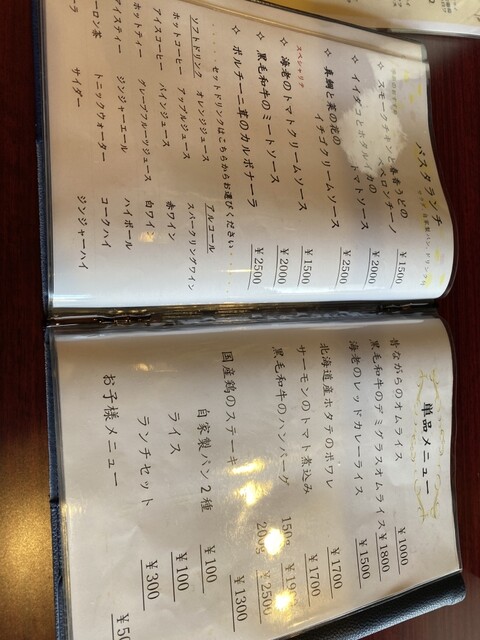 パスタランチ
サラダ、自家製パン、ドリンク付
スモークチキンと春香うどの
ペペロンチーノ ¥1500
イイダコとホタルイカの
トマトソース ¥2000
真鯛と菜の花の
イチゴクリームソース ¥2500
スペシャリテ
海老のトマトクリームソース ¥1500
黒毛和牛のミートソース ¥2000
ポルチーニ茸のカルボナーラ ¥2500
セットドリンクはこちらからお選びください
ソフトドリンク
ホットコーヒー
アイスコーヒー
ホットティー
アイスティー
ーロン茶
ーラ
オレンジジュース
アップルジュース
パインジュース
グレープフルーツジュース
ジンジャーエール
トニックウォーター
サイダー
アルコール
スパークリングワイン
赤ワイン
白ワイン
ハイボール
コークハイ
ジンジャーハイ
単品メニュー
昔ながらのオムライス ¥1000
黒毛和牛のデミグラスオムライス ¥1800
海老のレッドカレーライス ¥1500
北海道産ホタテのポワレ ¥1700
サーモンのトマト煮込み ¥1700
黒毛和牛のハンバーグ 150g
200g ¥2500
国産鶏のステーキ ¥1300
自家製パン2種 ¥100
ライス ¥100
ランチセット ¥300
お子様メニュー